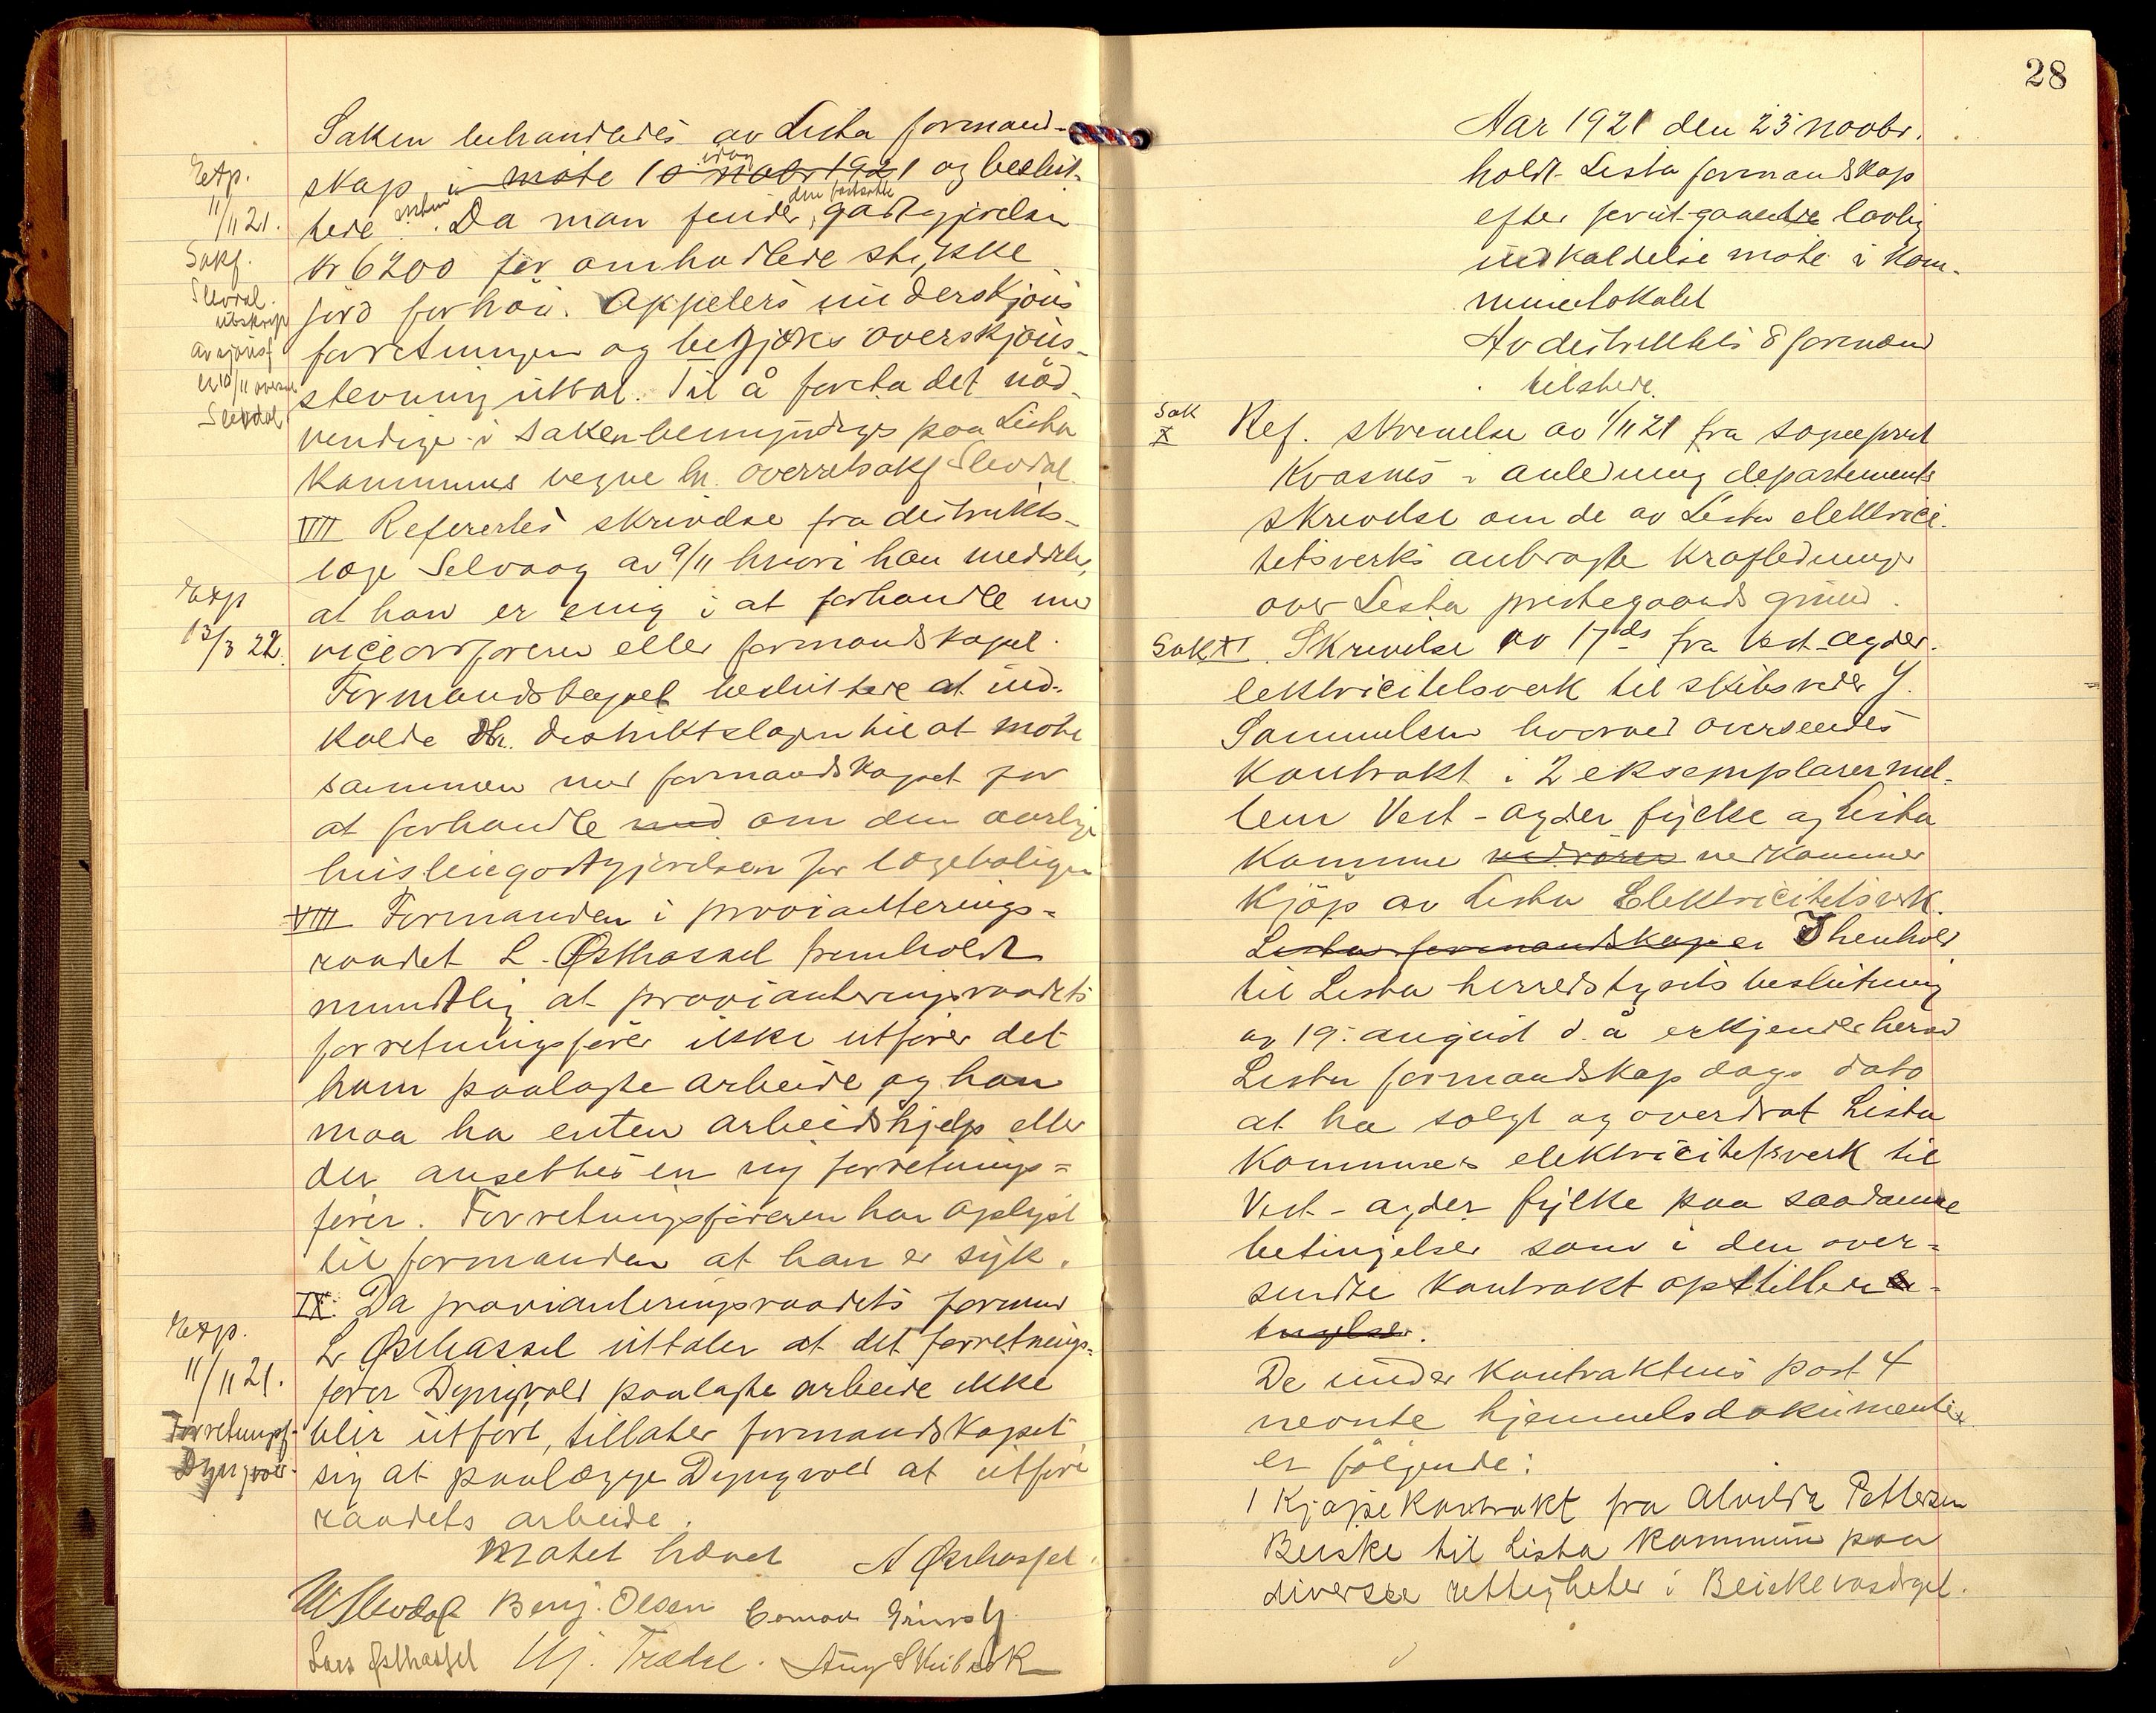 Saken behandledes av Lista formand-
skap i møte 10 novbr 1921 og beslut-
idag
tede. Da man finder godtgjørelsen
den fastsatte
kr 6200 for omhandlede stykke
jord for høi. Appeleres underskjøns
forretningen og begjæres overskjøns-
stevning uttat. Til å foreta det nød-
vendige i saken bemyndiges paa Lista
kommunes vegne hr. overretssakf Slevdal.
Exp.
11/11 21.
Sakf.
Slevdal.
utskrift
av skjønsf
Slevdal
VIII Refereres skrivelse fra distrikts-
læge Selvaag av 9/11 hvori han meddeler,
at han er enig i at forhandle med
viceordføreren eller formandskapet.
Exp
13/3 22.
Formandskapet besluttede at ind-
kalde Hr. distriktslægen til at møte
sammen med formandskapet for
at forhandle med om den aarlige
husleiegodtgjørelsen for lægeboligen
VIII Formanden i provianterings-
raadet L. Østhassel fremholdt
mundtlig at provianteringsraadets
forretningsfører ikke utfører det
ham paalagte arbeide og han
maa ha enten arbeidshjelp eller
der ansettes en ny forretnings-
fører. Forretningsføreren har oplyst
til formanden at han er syk.
IX. Da provianteringsraadets formand
L. Østhassel uttaler at det forretnings-
fører Dyngvold paalagte arbeide ikke
blir utført, tillater formandskapet
sig at paalægge Dyngvold at utføre
raadets arbeide.
Exp.
11/11 21.
Forretningsf.
Dyngvold.
Møtet hævet A Østhassel.
Slevdal Benj. Olsen
Lars Østhassel Aug Skibæk
28
Aar 1921 den 23 novbr.
holdt Lista formandskap
efter forutgaaende lovlig
indkaldelse møte i kom-
munelokalet
Av distriktets 8 formænd
tilstede.
Sak
X
Ref. skrivelse av 1/11 21 fra sogneprest
Kvasnes i anledning departements
skrivelse om de av Lista elektrici-
tetsverks anbragte kraftledninger
over Lista prestegaards grund.
Sak XI. Skrivelse av 17 ds fra Vest-Agder
lektricitetsverk til skibsreder J.
Samuelsen hvorved oversendes
kontrakt i 2 eksemplarer mel-
lem Vest-Agder fylke og Lista
kommune vedrøren vedkommer
kjøp av Lista Elektricitetsverk.
Lista formandskap er I henhold
til Lista herredstyrets beslutning
av 19. august d.å erkjender herved
Lista formandskap dags dato
at ha solgt og overdrat Lista
kommunes elektricitetsverk til
Vest-Agder fylke paa saadanne
betingelser som i den over-
sendte kontrakt opstillede be-
tingelser.
De under kontraktens post 4
nevnte hjemmelsdokumenter
er følgende:
1 Kjøpekontrakt fra Alvilde Pettersen
Beiske til Lista kommune paa
diverse rettigheter i Beiskevasdraget.